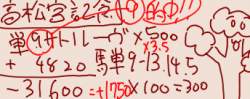 高松宮記念 ⑨ 的中!!
単⑨サトルーヴ×500 ×3.5
+ 4820 馬単9-13.14.5
-31600 =+1750×100=300